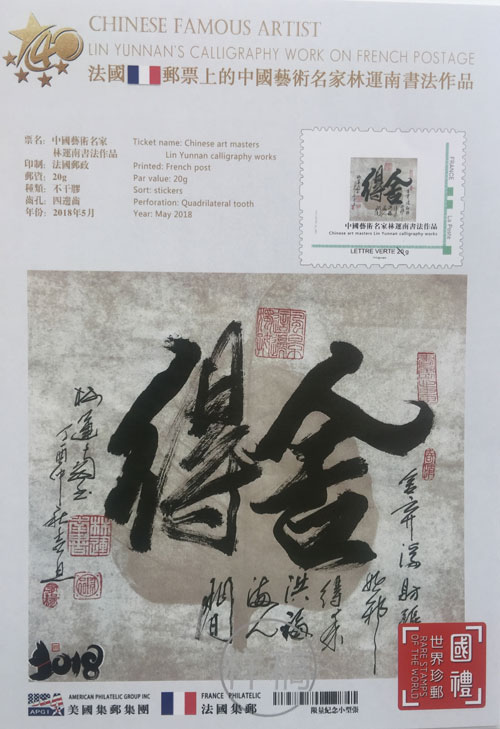 40
CHINESE FAMOUS ARTIST
LIN YUNNAN'S CALLIGRAPHY WORK ON FRENCH POSTAGE
法國郵票上的中國藝術名家林運南書法作品
票名: 中國藝術名家
林運南書法作品
印制: 法國郵政
郵資: 20g
種類: 不干膠
齒孔: 四邊齒
年份: 2018年5月
Ticket name: Chinese art masters
Lin Yunnan calligraphy works
Printed: French post
Par value: 20g
Sort: stickers
Perforation: Quadrilateral tooth
Year: May 2018
得舍
中國藝術名家林運南書法作品
Chinese art masters Lin Yunnan calligraphy works
LETTRE VERTE 20 g
FRANCE
La Poste
舍得
2018
國禮
世界珍郵
RARE STAMPS
OF THE WORLD
APGI
AMERICAN PHILATELIC GROUP INC
美國集郵集團
FRANCE PHILATELIC
法國集郵
限量紀念小型張